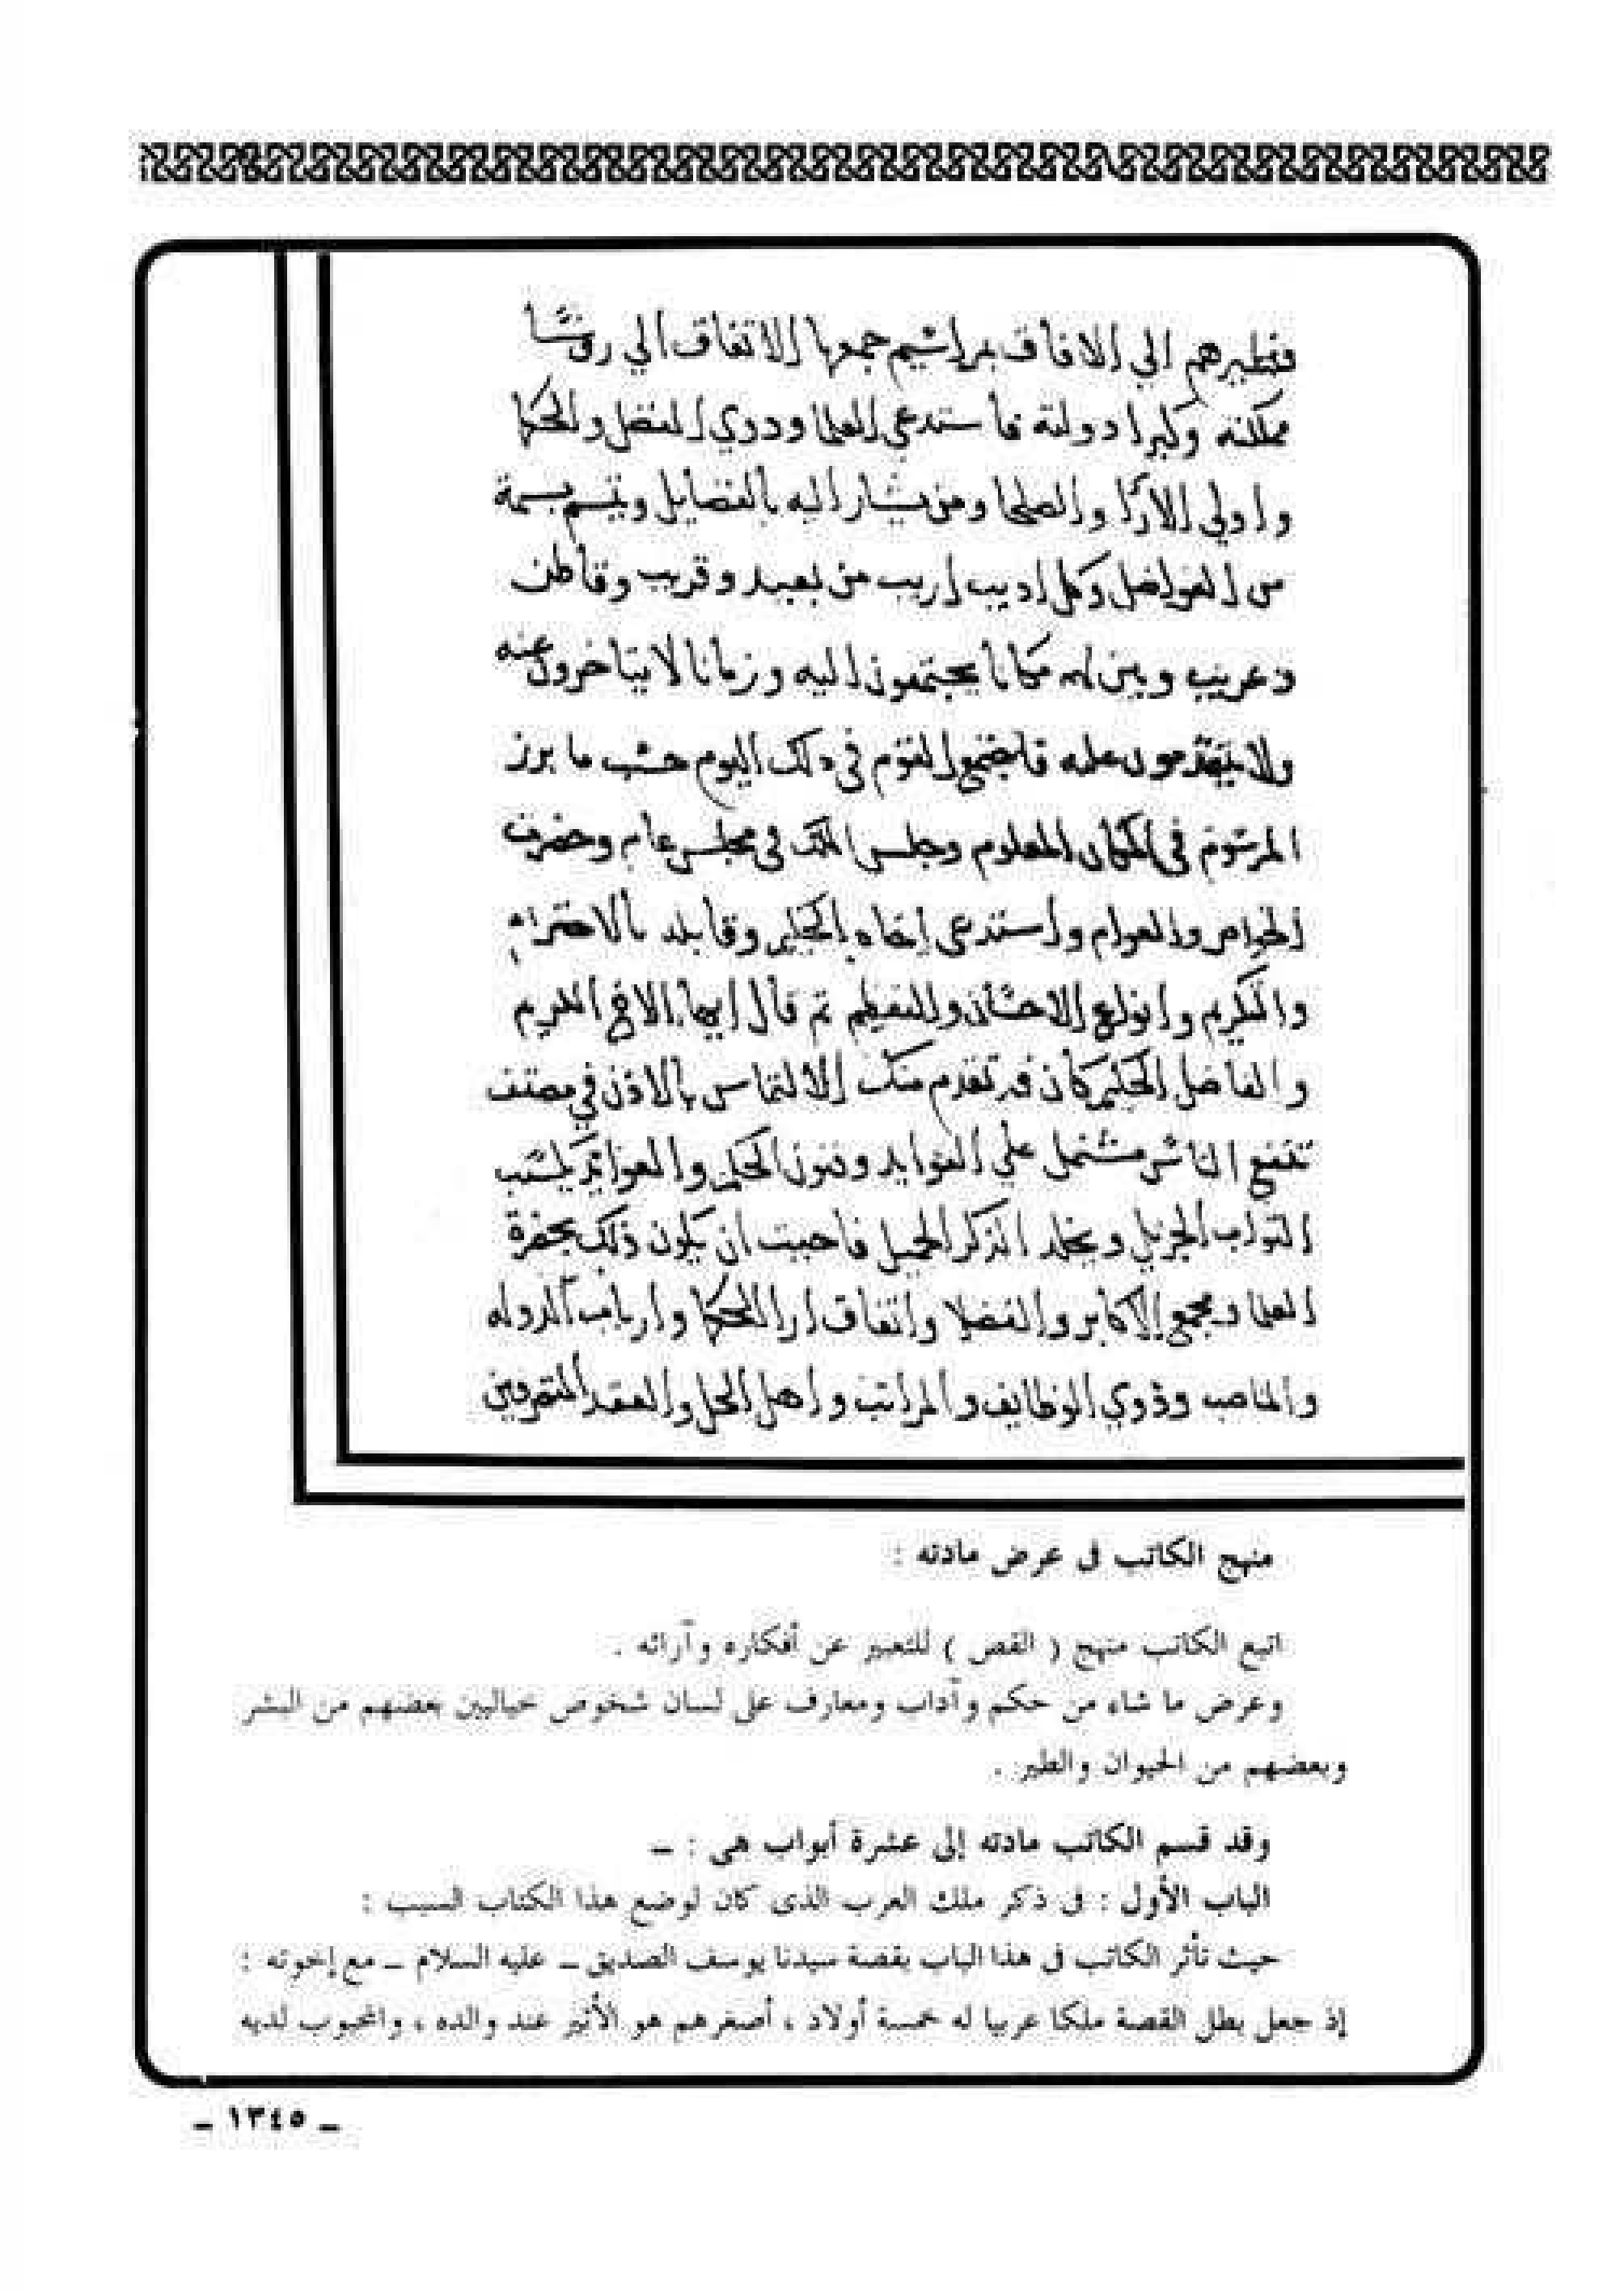 الي الافاق بمراسيم جمعها الاتفاق الي روسا
مملكته وكبرا دولته فاستدعي العلما وذوي الفضل والحكما
واولي الارا والصلحا ومن يشار اليه بالفضايل ويتسم بسمة
من الفواضل وكل اديب اريب من بعيد وقريب وقاطن
وغريب وبين لهم مكانا يجتمعون اليه وزمانا لا يتاخرون عنه
ولا يتقدمون عليه فاجتمع القوم في ذلك اليوم حسب ما برز
المرسوم في المكان المعلوم وجلس الملك في مجلس عام وحضرت
الخواص والعوام واستدعي اخاه الحكيم وقابله بالاحترام
والتكريم وانواع الاحسان والتعظيم ثم قال ايها الاخ الكريم
والفاضل الحكيم كان قد تقدم منك الالتماس بالاذن في مصنف
تنتفع الناس مشتمل علي الفوايد وفنون الحكم والعوايد يكسب
الثواب الجزيل ويخلد الذكر الجميل فاحببت ان يكون ذلك بحضرة
العلما ومجمع الاكابر والفضلا واتفاق ارا الحكما وارباب الدوله
والمناصب وذوي الوظايف والمراتب واهل الحل والعقد
منهج الكاتب فى عرض مادته :
اتبع الكاتب منهج ( القص ) للتعبير عن أفكاره وآرائه .
وعرض ما شاء من حكم وآداب ومعارف على لسان شخوص خياليين بعضهم من البشر
وبعضهم من الحيوان والطير .
وقد قسم الكاتب مادته إلى عشرة أبواب هى : ـ
الباب الأول : فى ذكر ملك العرب الذى كان لوضع هذا الكتاب السبب :
حيث تأثر الكاتب فى هذا الباب بقصة سيدنا يوسف الصديق ـ عليه السلام ـ مع إخوته :
إذ جعل بطل القصة ملكا عربيا له خمسة أولاد ، أصغرهم هو الأثير عند والده ، والمحبوب لديه
ـ ١٣٤٥ ـ